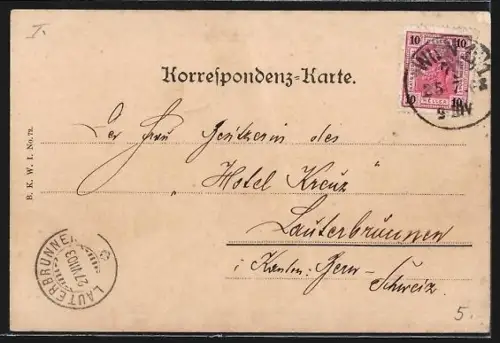 I.
10 10
HELLER
10 10
WIEN
25
9
Korrespondenz=Karte.
B. K. W. I. No. 72.
Der Frau Besitzerin des
"Hotel Kreuz"
Lauterbrunnen
i/ Kanton: Bern –
Schweiz.
LAUTERBRUNNEN
27 VII 03
5.